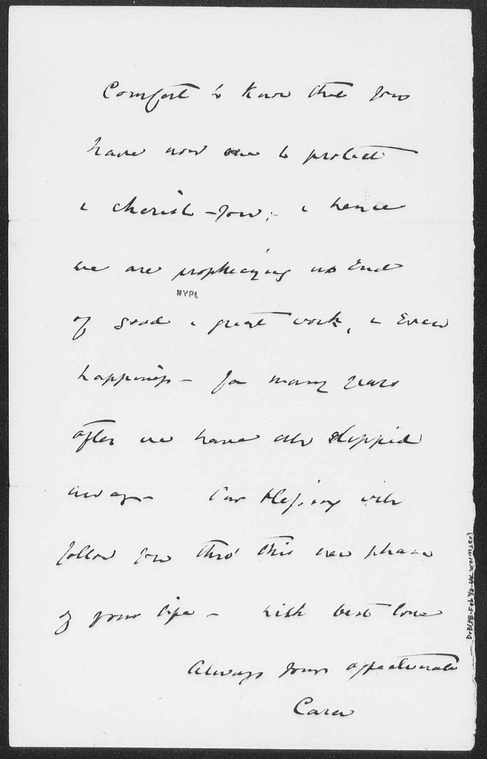 Comfort to know that you
have now one to protect
& cherish - you; & hence
we are prophecying no end
NYPL
of good & great work, & even
happiness - for many years
after we have all slipped
away - Our blessing will
follow you thro' this new phase
of your life - with best love
Always yours affectionate
Cara